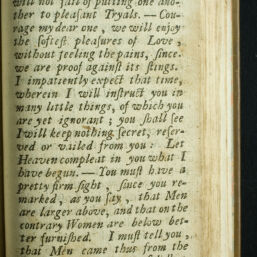 will not fail of putting one ano-
ther to pleaſant Tryals. — Cou-
rage my dear one, we will enjoy
the ſofteſt pleaſures of Love,
without feeling the pains, ſince
we are proof againſt its ſtings.
I impatiently expect that time,
wherein I will inſtruct you in
many little things, of which you
are yet ignorant; you ſhall ſee
I will keep nothing ſecret, reſer-
ved or vailed from you: Let
Heaven compleat in you what I
have begun. — You muſt have a
pretty firm ſight, ſince you re-
marked, as you ſay, that Men
are larger above, and that on the
contrary Women are below bet-
ter furniſhed. I muſt tell you,
that Men came thus from the